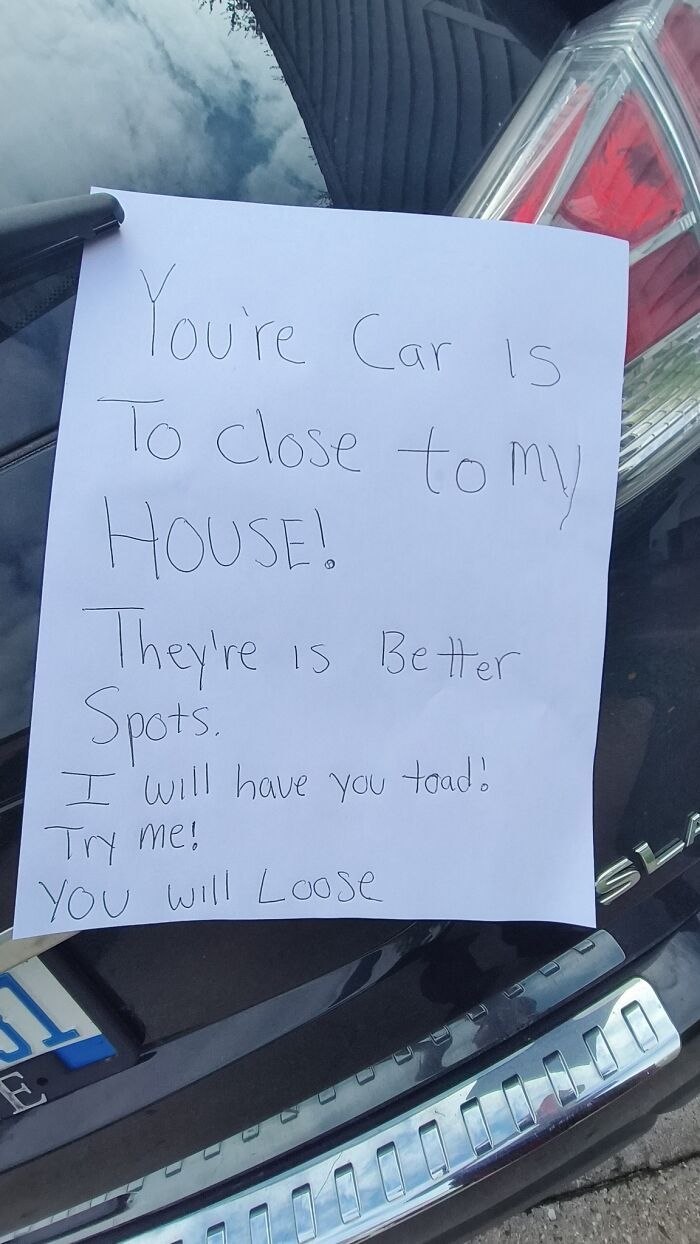 You're Car is
To close to my
HOUSE!
They're is Better
Spots.
I will have you toad!
Try me!
You will Loose
SLA
31
E